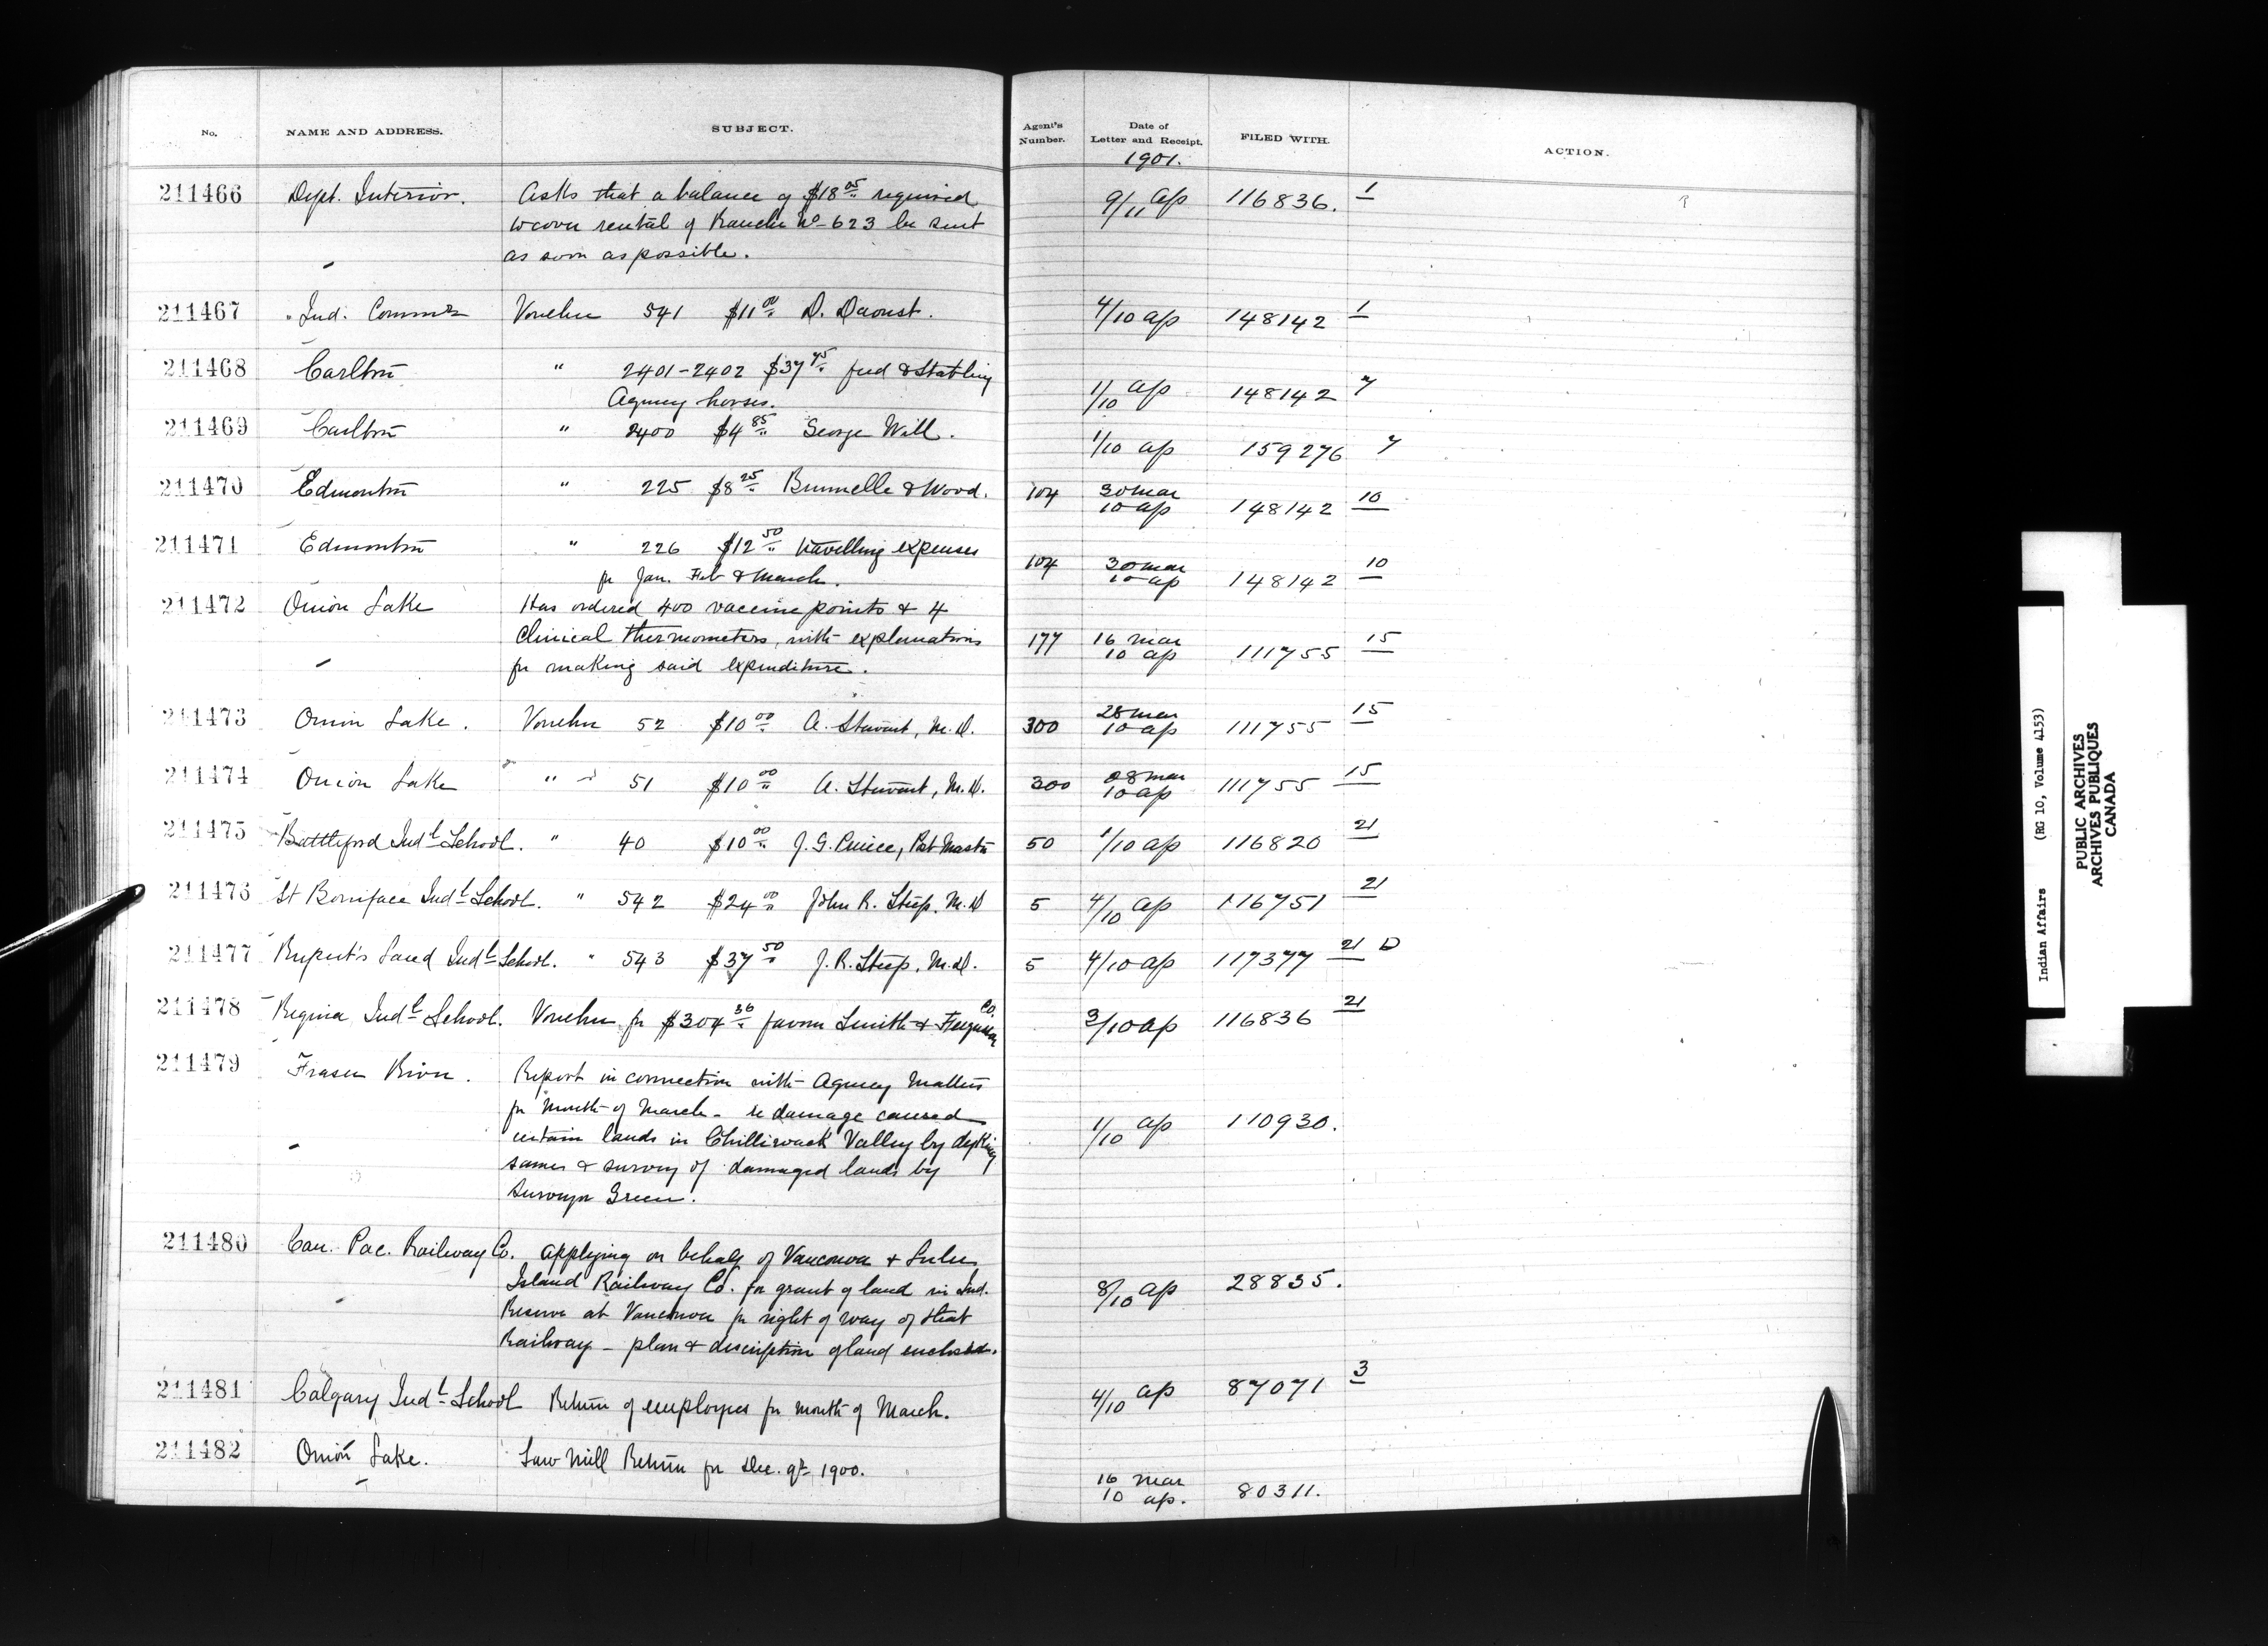 No. NAME AND ADDRESS. SUBJECT. Agent's Number. Date of Letter and Receipt. FILED WITH. ACTION.
1901.
211466 Dept. Interior. Asks that a balance of $18 05 required 9/11 ap 116836. 1
to cover rental of Ranche No 623 be sent
as soon as possible.
211467 Ind. Commr Voucher 541 $11 00 D. Daoust. 4/10 ap 148142 1
211468 Carlton " 2401-2402 $37 45 feed & Stabling 1/10 ap 148142 7
Agency horses.
211469 Carlton " 2400 $4 85 George Will. 1/10 ap 159276 7
211470 Edmonton " 225 $8 25 Brunelle & Wood. 104 30 mar 10 ap 148142 10
211471 Edmonton " 226 $12 50 travelling expenses 104 30 mar 10 ap 148142 10
for Jan. Feb & March.
211472 Onion Lake Has ordered 400 vaccine points & 4
Clinical thermometers, with explanations 177 16 mar 10 ap 111755 15
for making said expenditure.
211473 Onion Lake. Voucher 52 $10 00 A. Stewart, M.D. 300 28 mar 10 ap 111755 15
211474 Onion Lake " 51 $10 00 A. Stewart, M.D. 300 28 mar 10 ap 111755 15
211475 Battleford Indl School. " 40 $10 00 J. G. Post Master 50 1/10 ap 116820 21
211476 St Boniface Indl School. " 542 $24 00 John R. Steep. M.D 5 4/10 ap 116751 21
211477 Rupert's Land Indl School. " 543 $37 50 J. R. Steep, M.D. 5 4/10 ap 117377 21 D
211478 Regina Indl School. Voucher for $304 36 favour Smith & Ferguson Co. 3/10 ap 116836 21
211479 Fraser River. Report in connection with Agency Matters
for Month of March - re damage caused
certain lands in Chilliwack Valley by dyking 1/10 ap 110930.
same & survey of damaged lands by
Surveyor Green.
211480 Can. Pac. Railway Co. Applying on behalf of Vancouver & Lulu
Island Railway Co. for grant of land in Ind. 8/10 ap 28835.
Reserve at Vancouver for right of way of that
Railway - plan & description of land enclosed.
211481 Calgary Indl School Return of employees for month of March. 4/10 ap 87071 3
211482 Onion Lake. Saw Mill Return for Dec. qr 1900. 16 mar 10 ap. 80311.
Indian Affairs (RG 10, Volume 4153)
PUBLIC ARCHIVES
ARCHIVES PUBLIQUES
CANADA